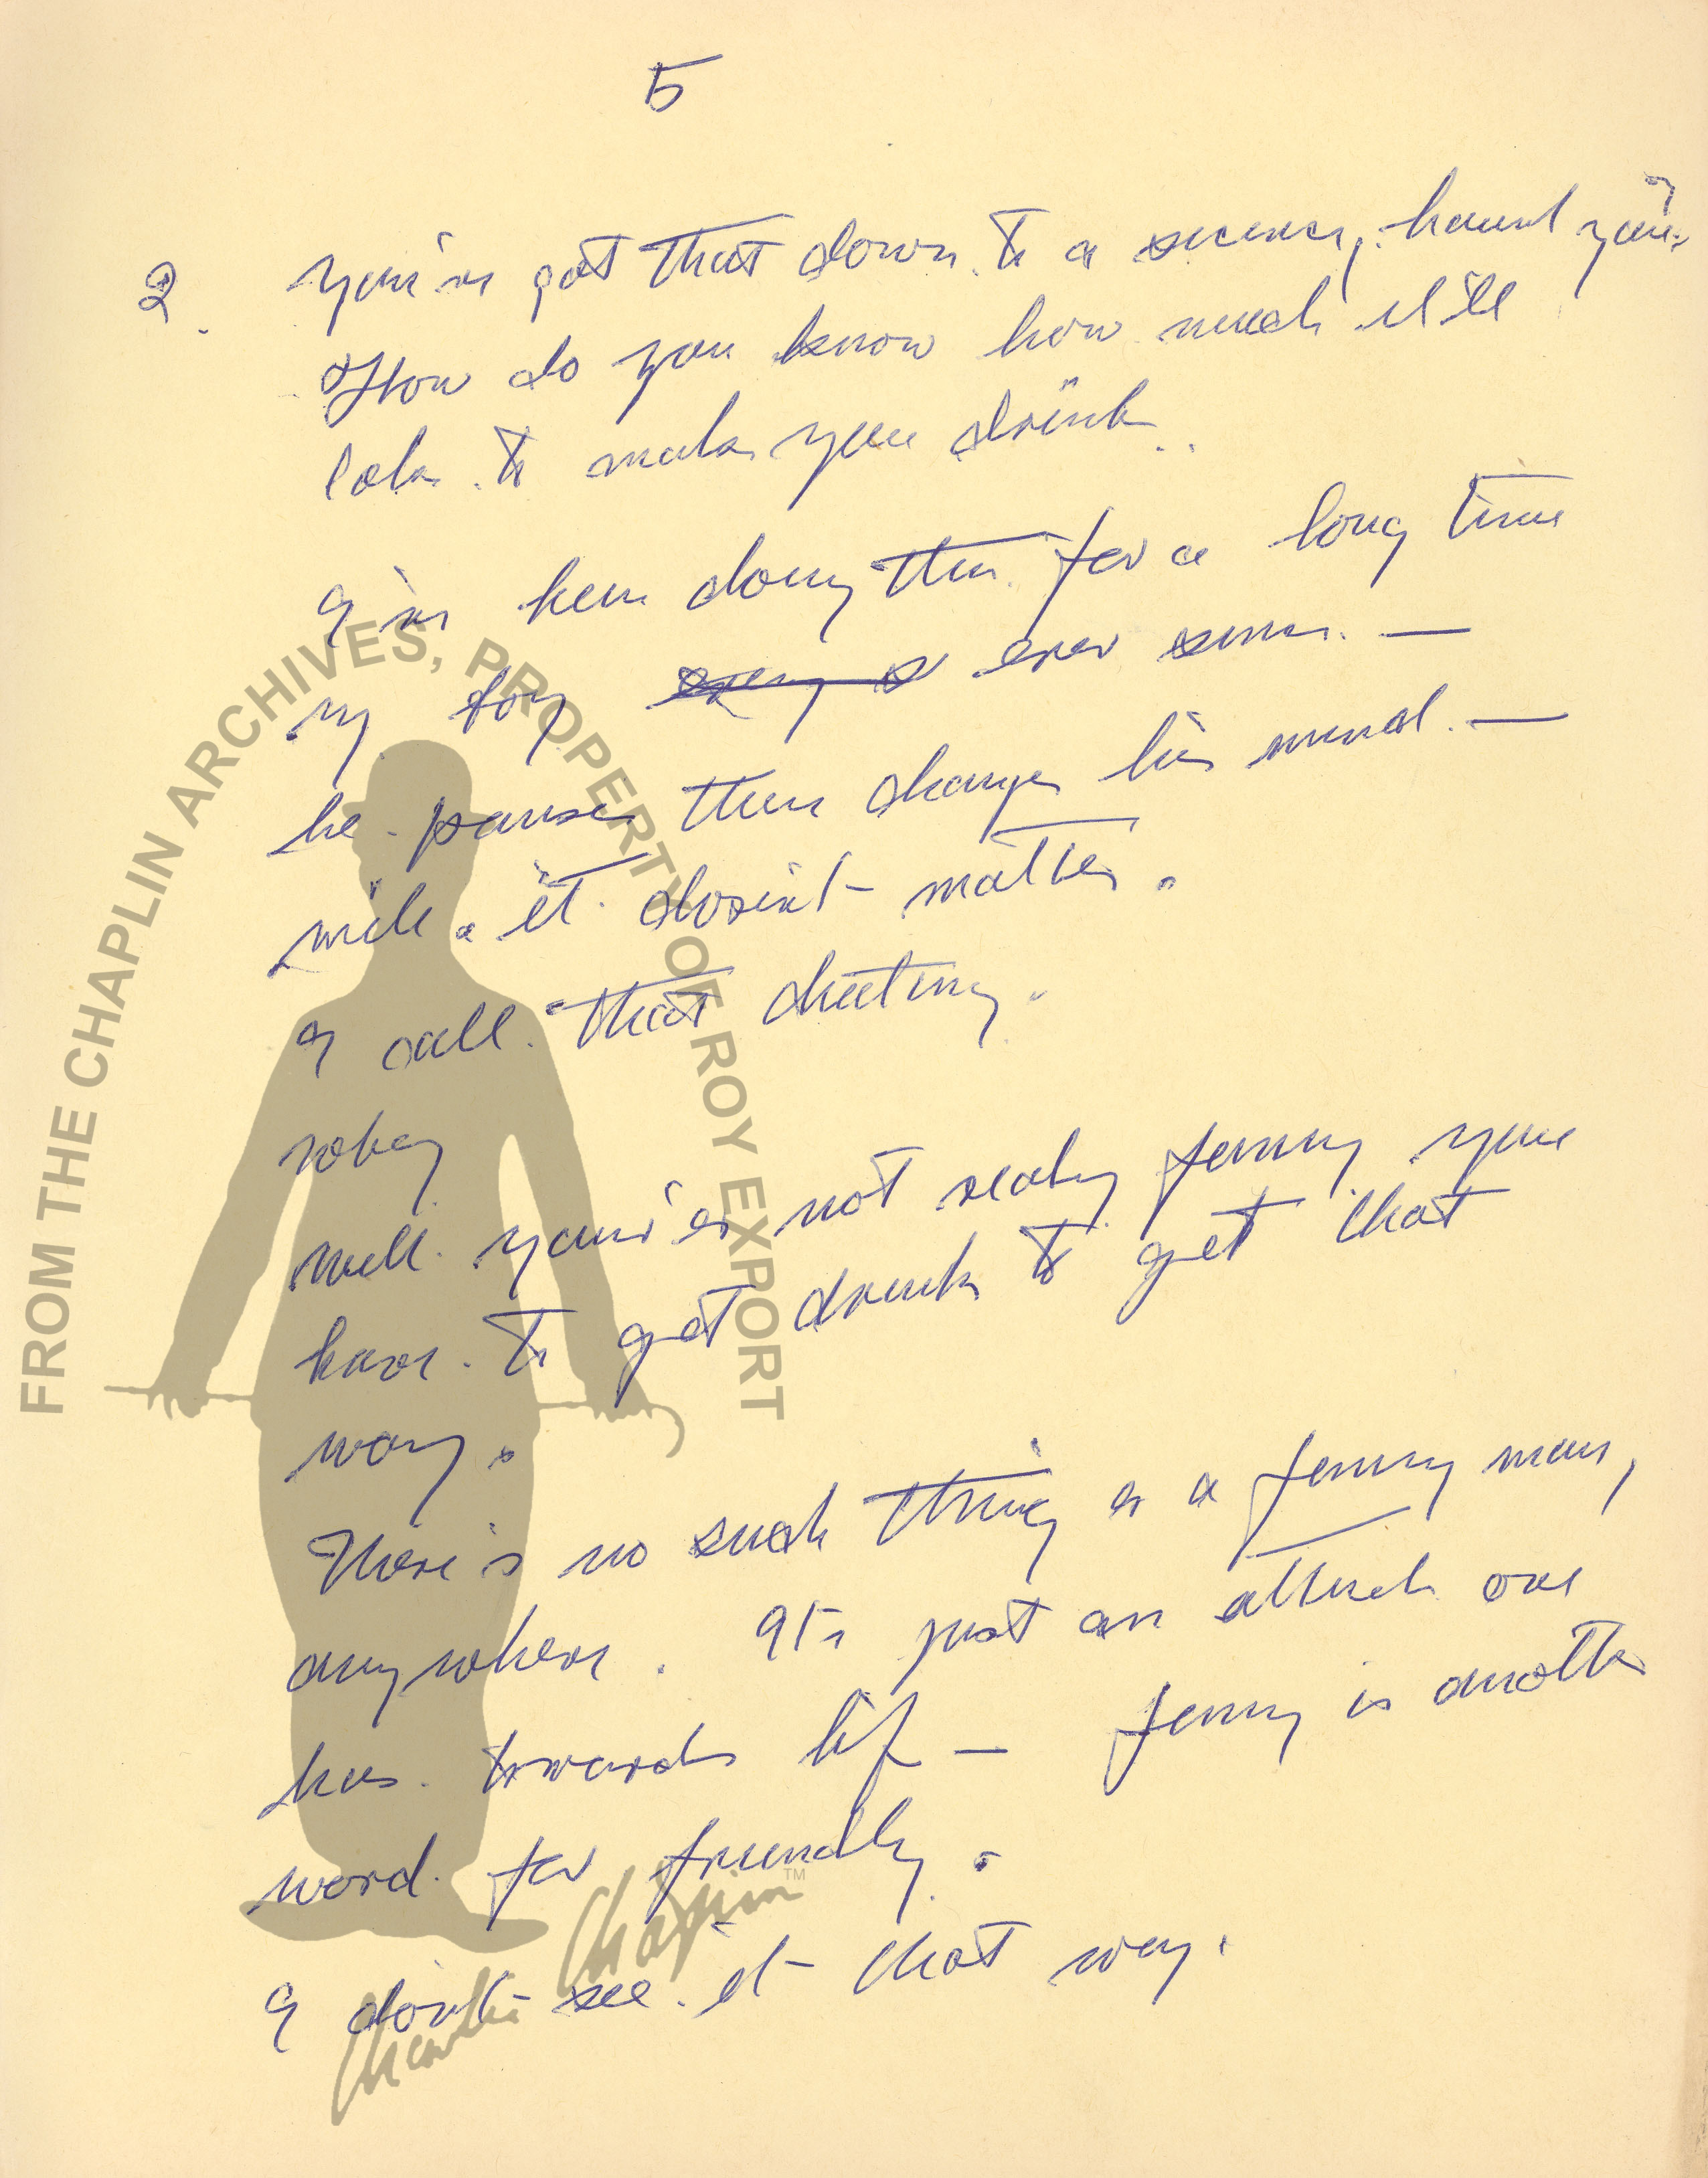 5
2. you've got that down to a science, havent you?
How do you know how much it'll
take to make you drunk.
I've been doing this for a long time
my boy ever since. —
he pauses then changes his mind. —
well. it dosint matter.
I call that cheeting.
well. your'er not realy funny you
have to get drunk to get that
way.
There's no such thing as a funny man,
anywhere. Its just an attitude one
has towards life — funny is another
word for friendly.
I dont see it that way.
FROM THE CHAPLIN ARCHIVES, PROPERTY OF ROY EXPORT
Charlie Chaplin™